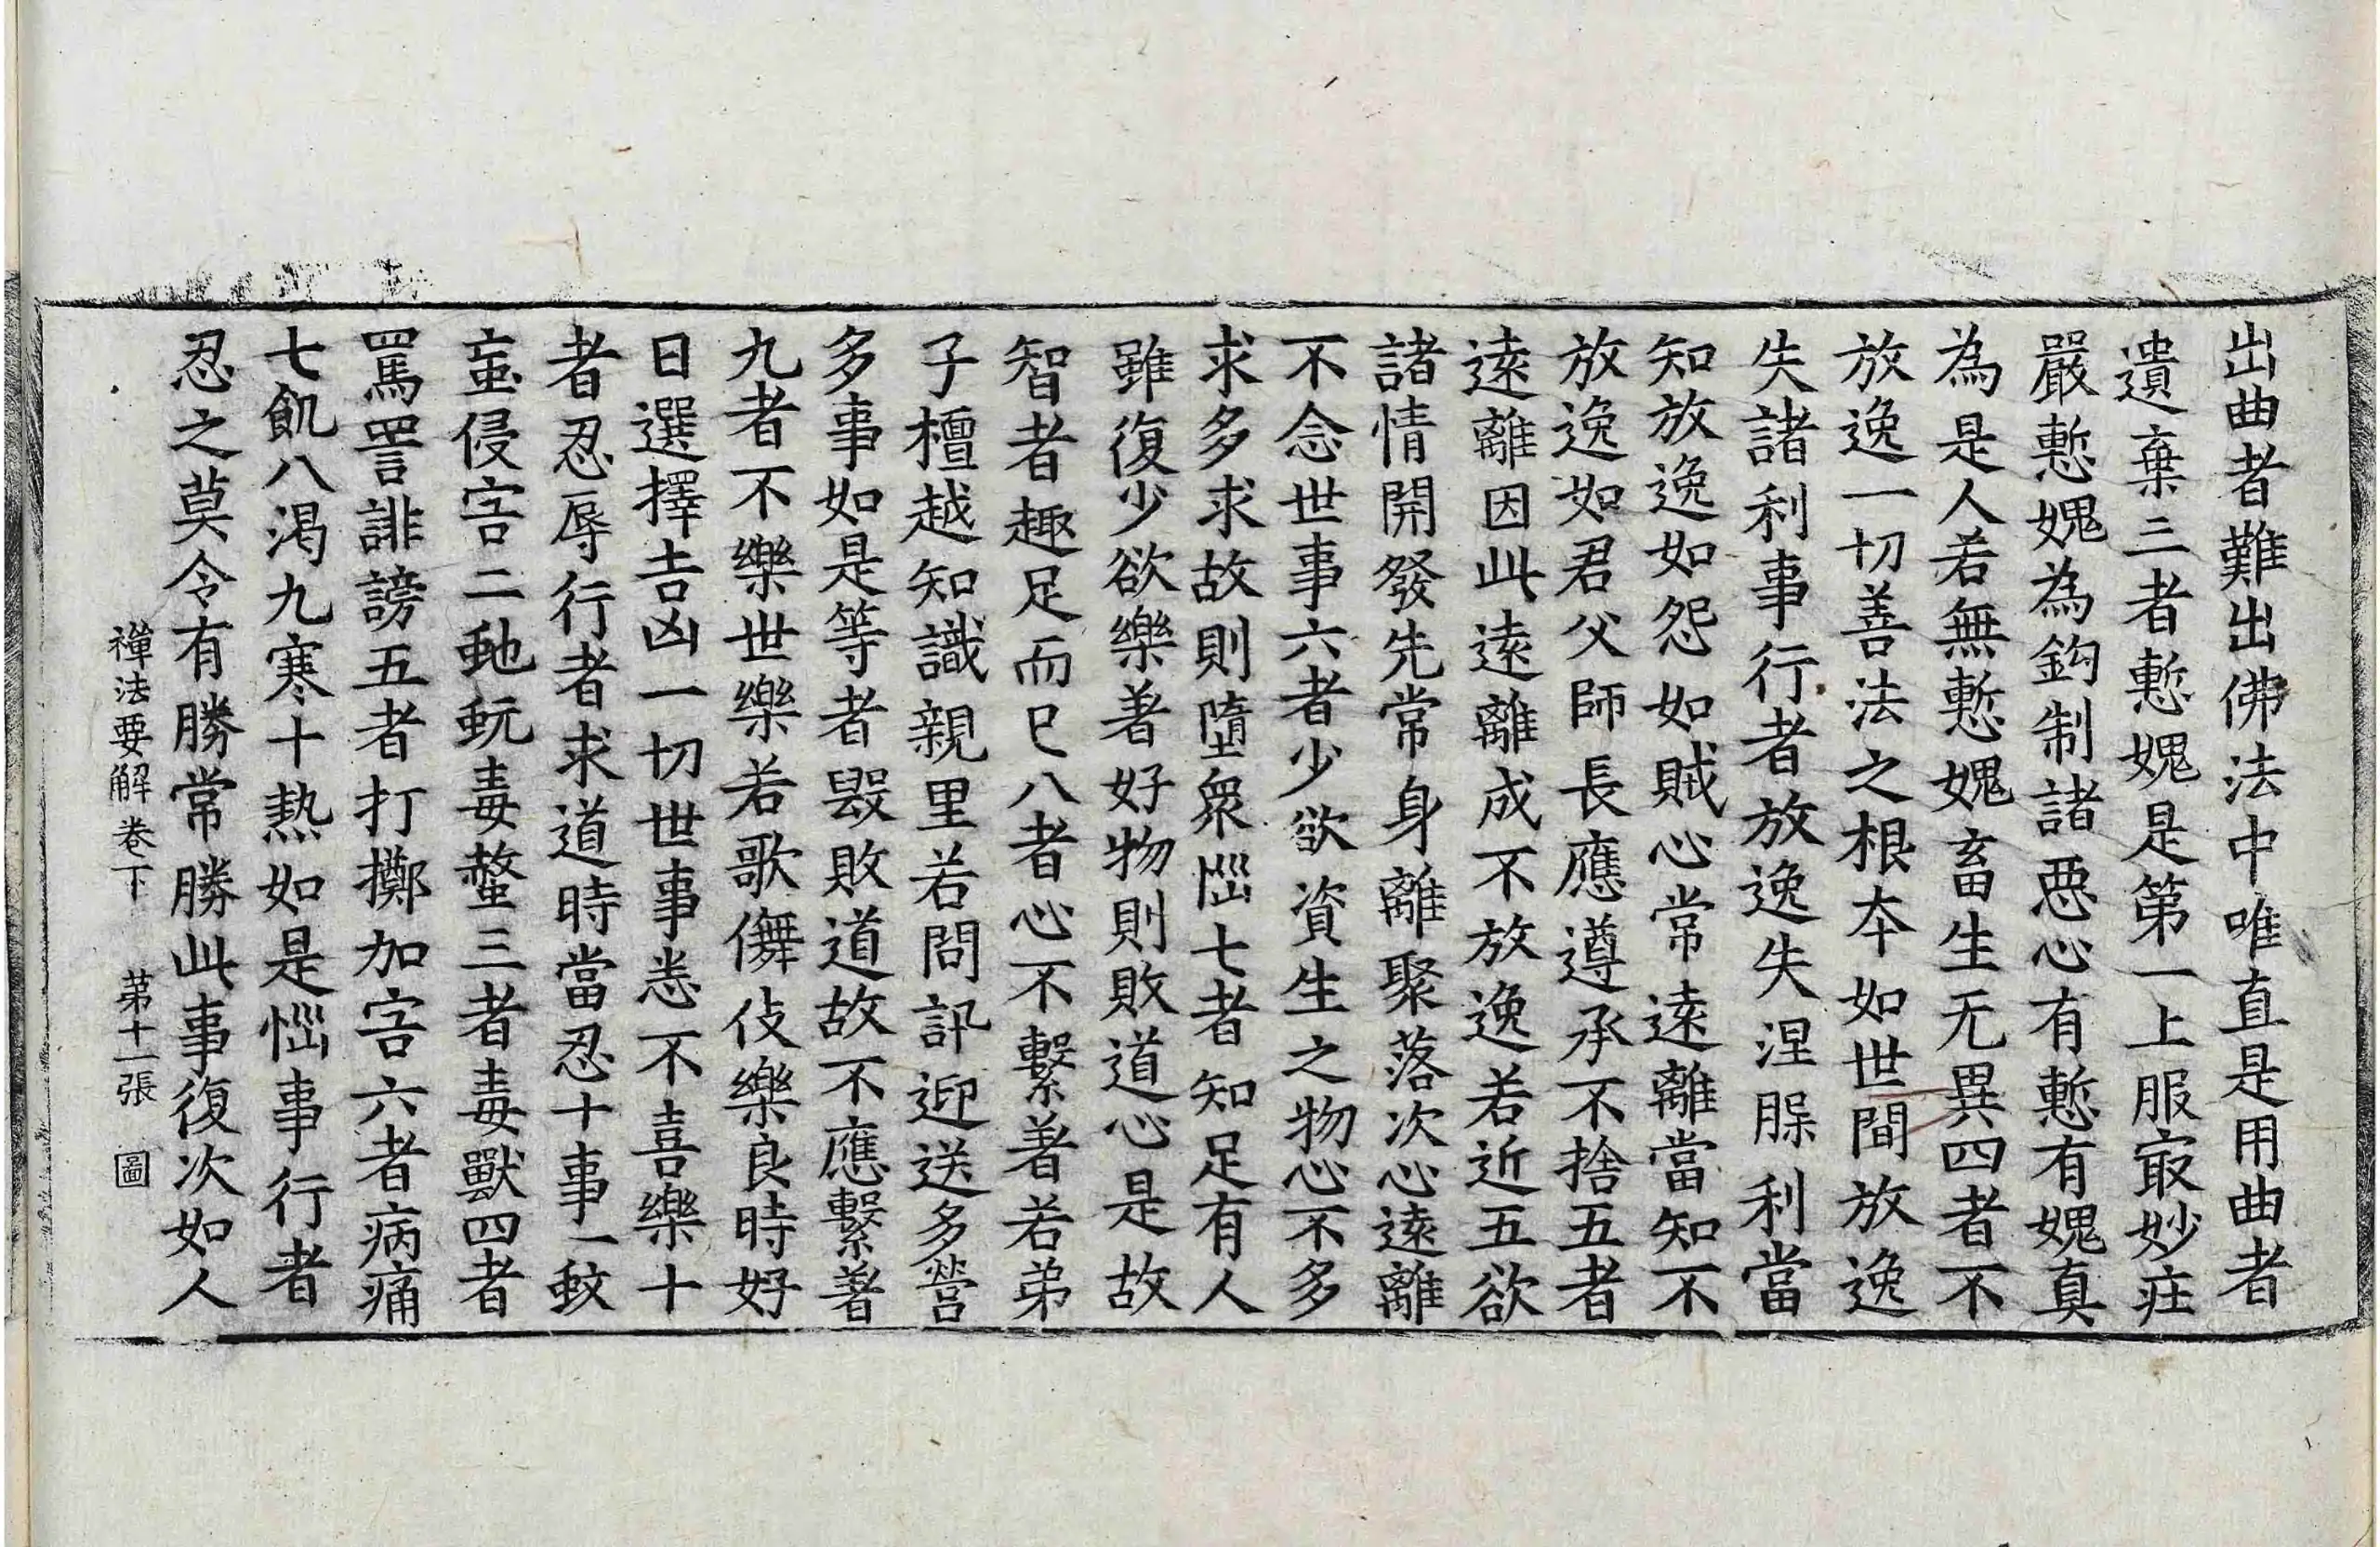 出曲者難出佛法中唯直是用曲者
遺棄三者慙媿是第一上服㝡妙疘
嚴慙媿為鈎制諸惡心有慙有媿真
為是人若無慙媿畜生无異四者不
放逸一切善法之根本如世間放逸
失諸利事行者放逸失涅槃利當
知放逸如怨如賊心常遠離當知不
放逸如君父師長應遵承不捨五者
遠離因此遠離成不放逸若近五欲
諸情開發先常身離聚落次心遠離
不念世事六者少欲資生之物心不多
求多求故則墮衆惱七者知足有人
雖復少欲樂著好物則敗道心是故
智者趣足而已八者心不繫著若弟
子檀越知識親里若問訊迎送多營
多事如是等者毀敗道故不應繫著
九者不樂世樂若歌儛伎樂良時好
日選擇吉凶一切世事悉不喜樂十
者忍辱行者求道時當忍十事一蚊
蝱侵害二虵蚖毒螫三者毒獸四者
罵詈誹謗五者打擲加害六者病痛
七飢八渴九寒十熱如是惱事行者
忍之莫令有勝常勝此事復次如人
禪法要解卷下 第十一張 圖